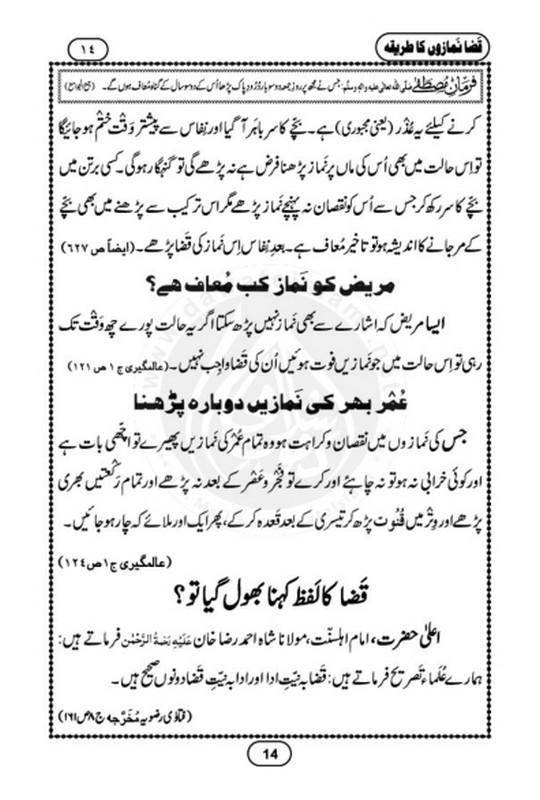 قضا نمازوں کا طریقہ
١٤
فرمانِ مصطفٰے صلی اللہ تعالیٰ علیہ والہ وسلم: جس نے مجھ پر روزِ جمعہ دو سو بار دُرُودِ پاک پڑھا اُس کے دو سو سال کے گناہ مُعاف ہوں گے۔ (جمع الجوامع)
کرنے کیلئے یہ عُذْر (یعنی مجبوری) ہے۔ بچّے کا سر باہَر آ گیا اور نِفاس سے پیشتر وَقْت ختْم ہو جائیگا
تو اِس حالت میں بھی اُس کی ماں پر نَماز پڑھنا فرض ہے نہ پڑھے گی تو گنہگار ہو گی۔ کسی برتن میں
بچّے کا سر رکھ کر جس سے اُس کو نقصان نہ پہنچے نَماز پڑھے مگر اس ترکیب سے پڑھنے میں بھی بچّے
کے مر جانے کا اندیشہ ہو تو تاخیر مُعاف ہے۔ بعدِ نِفاس اِس نَماز کی قَضا پڑھے۔ (ایضاً ص ٦٢٧)
مریض کو نَماز کب مُعاف ھے؟
ایسا مریض کہ اشارے سے بھی نَماز نہیں پڑھ سکتا اگر یہ حالت پورے چھ وَقْت تک
رہی تو اِس حالت میں جو نَمازیں فوت ہوئیں اُن کی قَضا واجِب نہیں۔ (عالمگیری ج ١ ص ١٢١)
عُمْر بھر کی نَمازیں دوبارہ پڑھنا
جس کی نَمازوں میں نقصان و کراہت ہو وہ تمام عُمْر کی نَمازیں پھیرے تو اچّھی بات ہے
اور کوئی خرابی نہ ہو تو نہ چاہئے اور کرے تو فَجْر و عَصْر کے بعد نہ پڑھے اور تمام رَکْعتیں بھری
پڑھے اور وِتْر میں قُنُوت پڑھ کر تیسری کے بعد قَعدہ کر کے، پھر ایک اور ملائے کہ چار ہو جائیں۔
(عالمگیری ج ١ ص ١٢٤)
قَضا کا لَفظ کہنا بھول گیا تو؟
اعلیٰ حضرت، امام اہلسنّت، مولانا شاہ احمد رضا خان عَلَیْہِ رَحْمَۃُ الرَّحْمٰن فرماتے ہیں:
ہمارے عُلَماء تَصریح فرماتے ہیں: قَضا بہ نیّتِ ادا اور ادا بہ نیّتِ قَضا دونوں صحیح ہیں۔
(فتاوٰی رضویہ مُخَرَّجہ ج ٨ ص ١٦١)
14